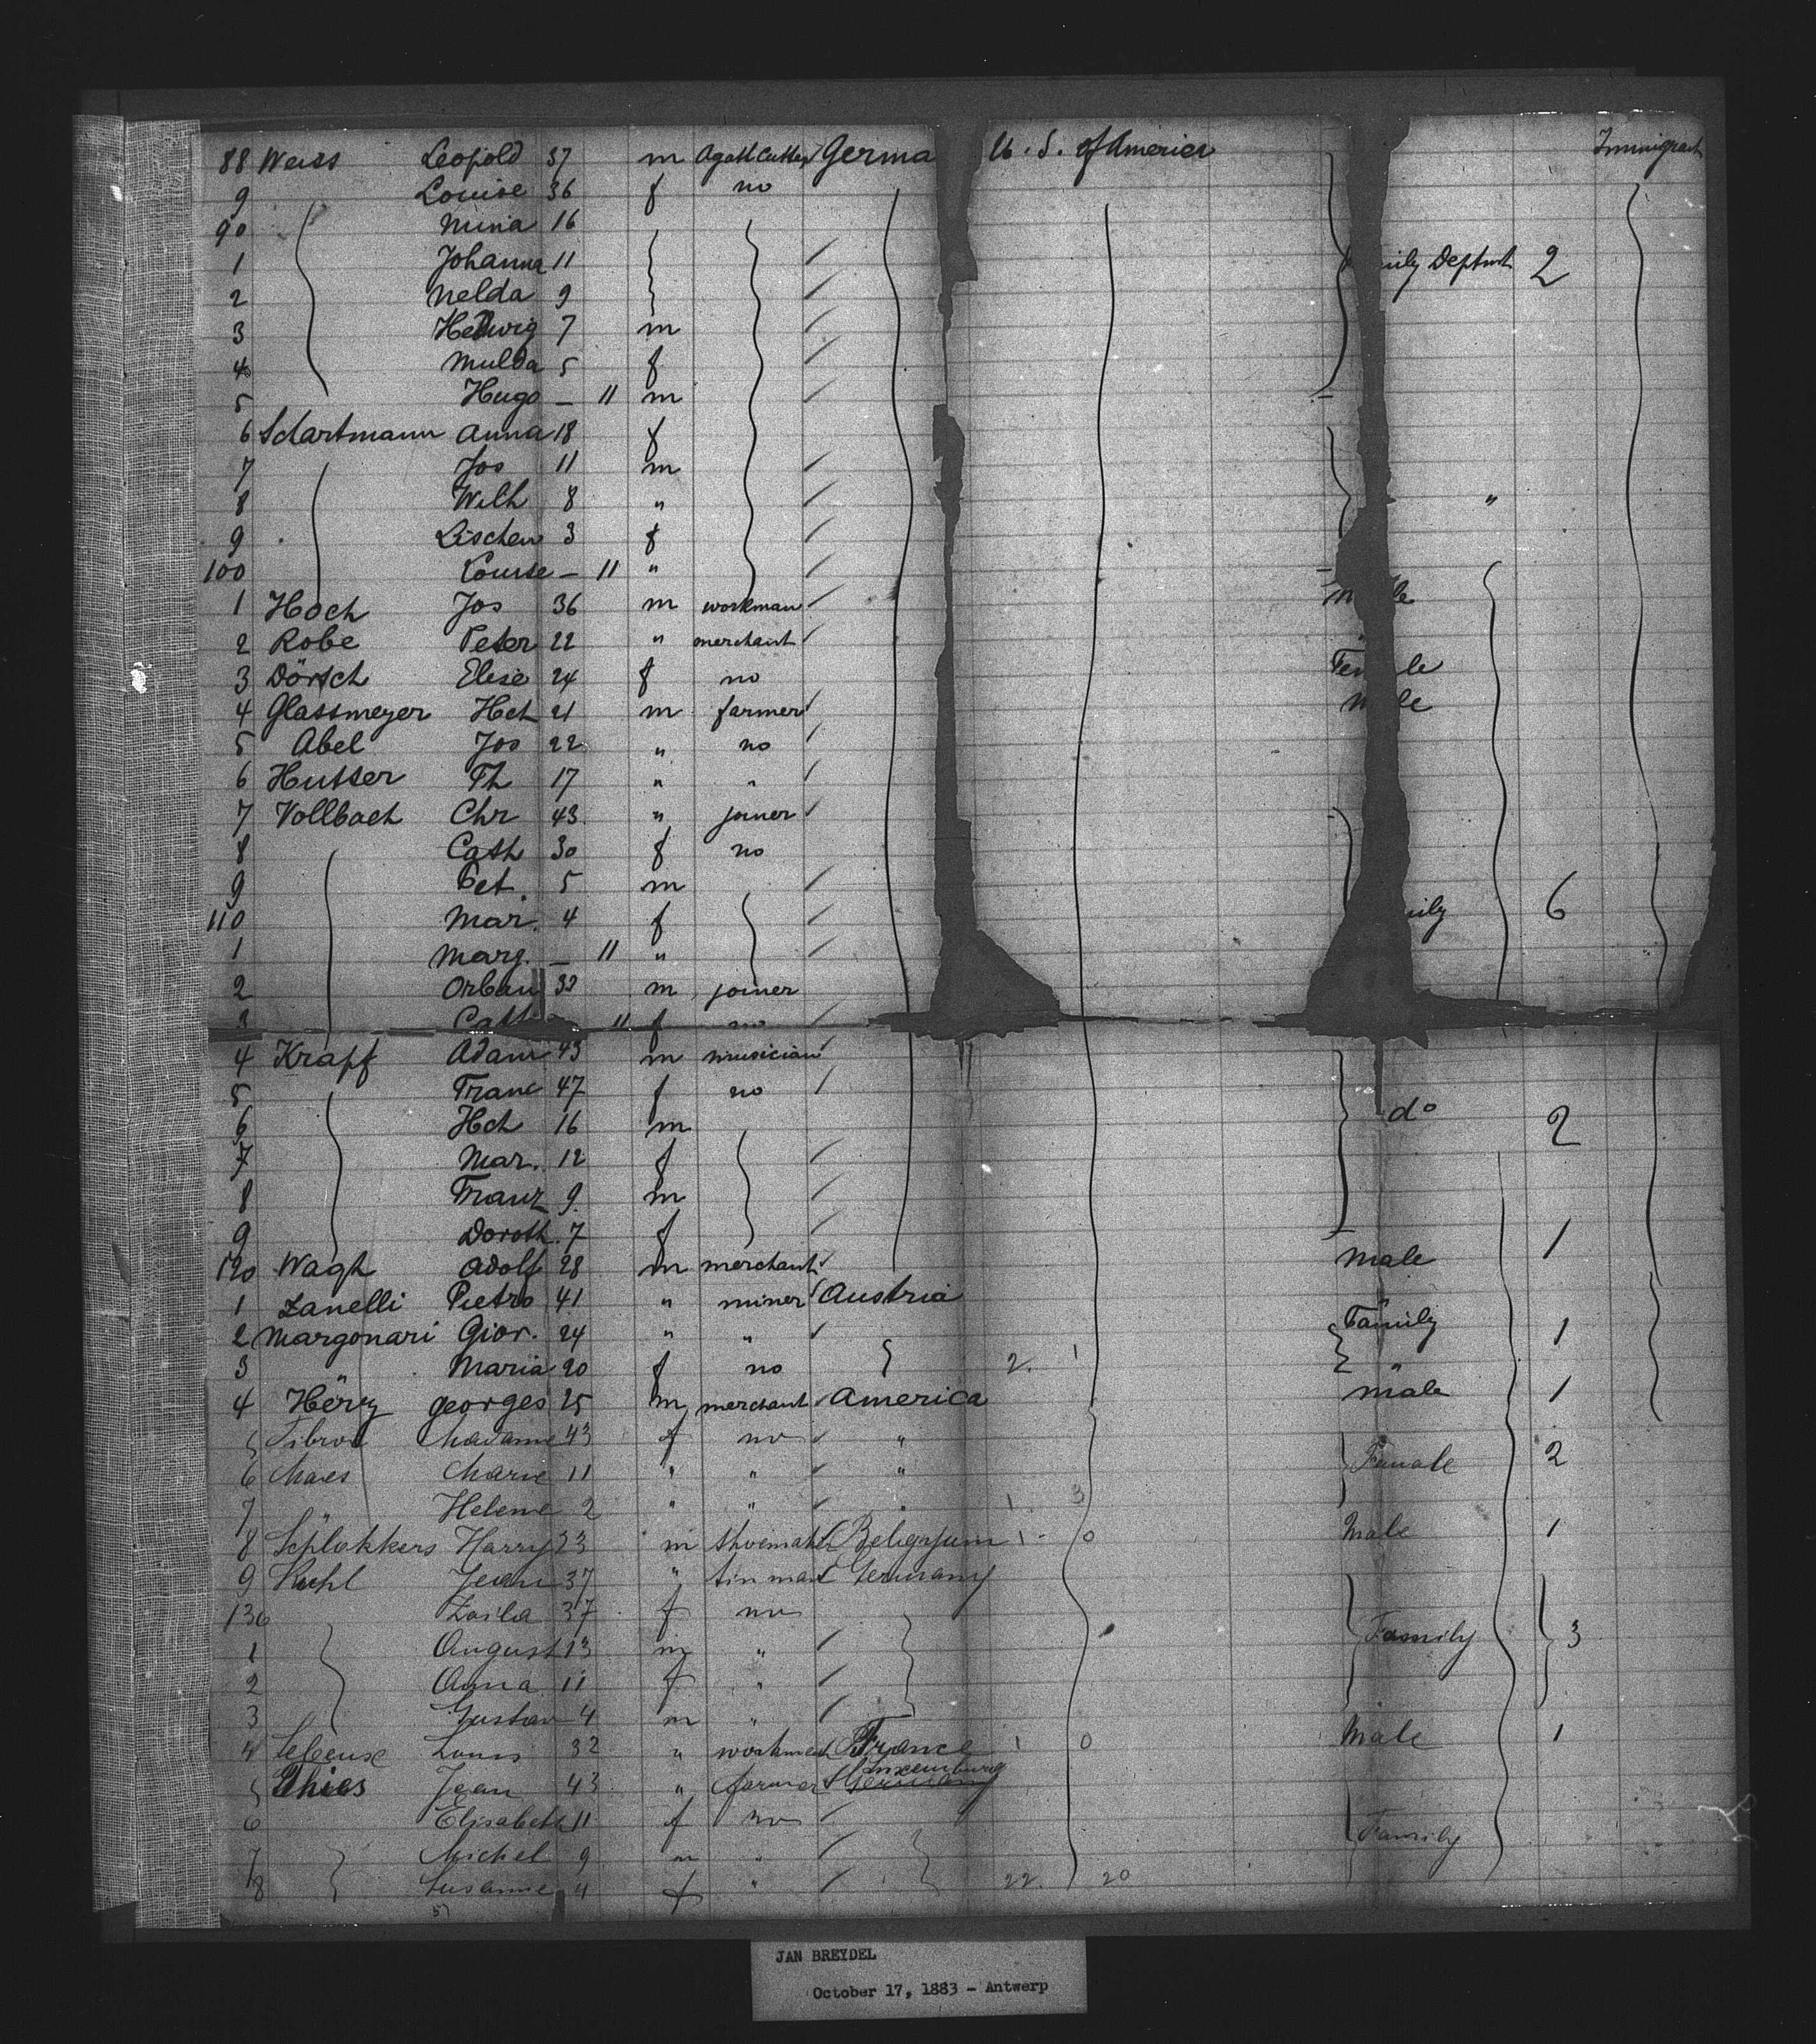 88 Weiss Leopold 37 m Agatt Cutter Germa U. S. of America Immigrant
9 Louise 36 f no
90 Mina 16
1 Johanna 11 ily Deptmt 2
2 Nelda 9
3 Hedwig 7 m
4 Mulda 5 f
5 Hugo — 11 m
6 Schartmann Anna 18 f
7 Jos 11 m
8 Wilh 8 " "
9 Lischen 3 f
100 Louise — 11 "
1 Hoch Jos 36 m workman m le
2 Robe Peter 22 " merchant "
3 Dörsch Elise 24 f no Fem le
4 Glassmeyer Hch 21 m farmer m le
5 Abel Jos 22 " no
6 Hutser Th 17 " "
7 Vollbach Chr 43 " joiner
8 Cath 30 f no
9 Pet. 5 m
110 Mar. 4 f ily 6
1 Marg. — 11 "
2 Orban 32 m joiner
3 Cath 11 f no
4 Krapf Adam 43 m musician
5 Franc 47 f no do
6 Hch 16 m 2
7 Mar. 12 f
8 Franz 9 m
9 Doroth. 7 f
120 Wagh Adolf 28 m merchant male 1
1 Zanelli Pietro 41 " miner Austria "
2 Margonari Giov. 24 " " Family 1
3 Maria 20 f no 2. 1
4 Hëry georges 25 m merchant America male 1
5 Madame 43 f no "
6 Maes Marie 11 " " " Female 2
7 Helene 2 " " " 1. 3
8 Schlokkers Harry 23 m shoemaker Beligyum 1 - 0 Male 1
9 Kuhl Jean 37 " tin man Germany
130 Zoila 37 f no
1 August 13 m " Family 3
2 Anna 11 f "
3 Gustav 4 m "
4 Louis 32 " workman France 1 0 Male 1
5 Thies Jean 43 " farmer Germany Luxemburg
6 Elisabeth 11 f no Family
7 Michel 9 m "
8 Susanne 4 f " 22. 20
JAN BREYDEL
October 17, 1883 - Antwerp